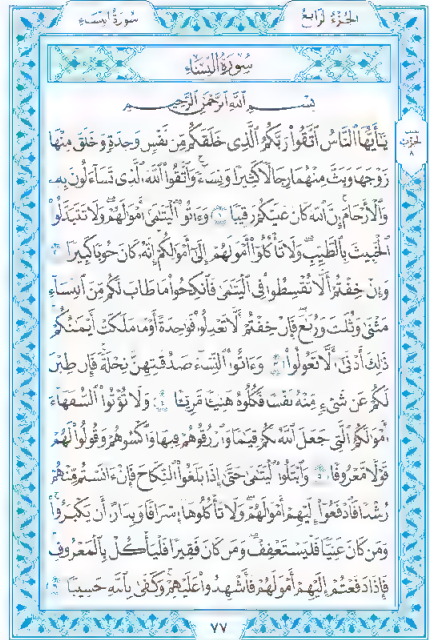 سورة النساء
الجزء الرابع
سُورَةُ النِّسَاءِ
بِسْمِ ٱللَّهِ ٱلرَّحْمَٰنِ ٱلرَّحِيمِ
يَٰٓأَيُّهَا ٱلنَّاسُ ٱتَّقُوا۟ رَبَّكُمُ ٱلَّذِى خَلَقَكُم مِّن نَّفْسٍ وَٰحِدَةٍ وَخَلَقَ مِنْهَا
زَوْجَهَا وَبَثَّ مِنْهُمَا رِجَالًا كَثِيرًا وَنِسَآءً وَٱتَّقُوا۟ ٱللَّهَ ٱلَّذِى تَسَآءَلُونَ بِهِۦ
وَٱلْأَرْحَامَ إِنَّ ٱللَّهَ كَانَ عَلَيْكُمْ رَقِيبًا ١ وَءَاتُوا۟ ٱلْيَتَٰمَىٰٓ أَمْوَٰلَهُمْ وَلَا تَتَبَدَّلُوا۟
ٱلْخَبِيثَ بِٱلطَّيِّبِ وَلَا تَأْكُلُوٓا۟ أَمْوَٰلَهُمْ إِلَىٰٓ أَمْوَٰلِكُمْ إِنَّهُۥ كَانَ حُوبًا كَبِيرًا ٢
وَإِنْ خِفْتُمْ أَلَّا تُقْسِطُوا۟ فِى ٱلْيَتَٰمَىٰ فَٱنكِحُوا۟ مَا طَابَ لَكُم مِّنَ ٱلنِّسَآءِ
مَثْنَىٰ وَثُلَٰثَ وَرُبَٰعَ فَإِنْ خِفْتُمْ أَلَّا تَعْدِلُوا۟ فَوَٰحِدَةً أَوْ مَا مَلَكَتْ أَيْمَٰنُكُمْ
ذَٰلِكَ أَدْنَىٰٓ أَلَّا تَعُولُوا۟ ٣ وَءَاتُوا۟ ٱلنِّسَآءَ صَدُقَٰتِهِنَّ نِحْلَةً فَإِن طِبْنَ
لَكُمْ عَن شَىْءٍ مِّنْهُ نَفْسًا فَكُلُوهُ هَنِيٓـًٔا مَّرِيٓـًٔا ٤ وَلَا تُؤْتُوا۟ ٱلسُّفَهَآءَ
أَمْوَٰلَكُمُ ٱلَّتِى جَعَلَ ٱللَّهُ لَكُمْ قِيَٰمًا وَٱرْزُقُوهُمْ فِيهَا وَٱكْسُوهُمْ وَقُولُوا۟ لَهُمْ
قَوْلًا مَّعْرُوفًا ٥ وَٱبْتَلُوا۟ ٱلْيَتَٰمَىٰ حَتَّىٰٓ إِذَا بَلَغُوا۟ ٱلنِّكَاحَ فَإِنْ ءَانَسْتُم مِّنْهُمْ
رُشْدًا فَٱدْفَعُوٓا۟ إِلَيْهِمْ أَمْوَٰلَهُمْ وَلَا تَأْكُلُوهَآ إِسْرَافًا وَبِدَارًا أَن يَكْبَرُوا۟
وَمَن كَانَ غَنِيًّا فَلْيَسْتَعْفِفْ وَمَن كَانَ فَقِيرًا فَلْيَأْكُلْ بِٱلْمَعْرُوفِ
فَإِذَا دَفَعْتُمْ إِلَيْهِمْ أَمْوَٰلَهُمْ فَأَشْهِدُوا۟ عَلَيْهِمْ وَكَفَىٰ بِٱللَّهِ حَسِيبًا ٦
٧٧